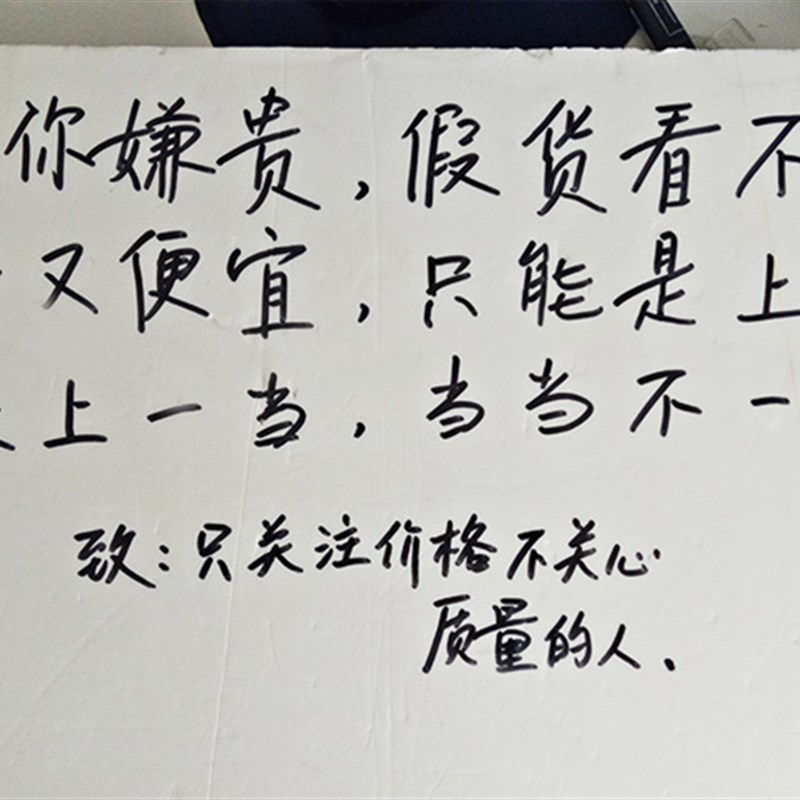 你嫌贵，假货看不
又便宜，只能是上
上一当，当当不一
致：只关注价格不关心
质量的人.